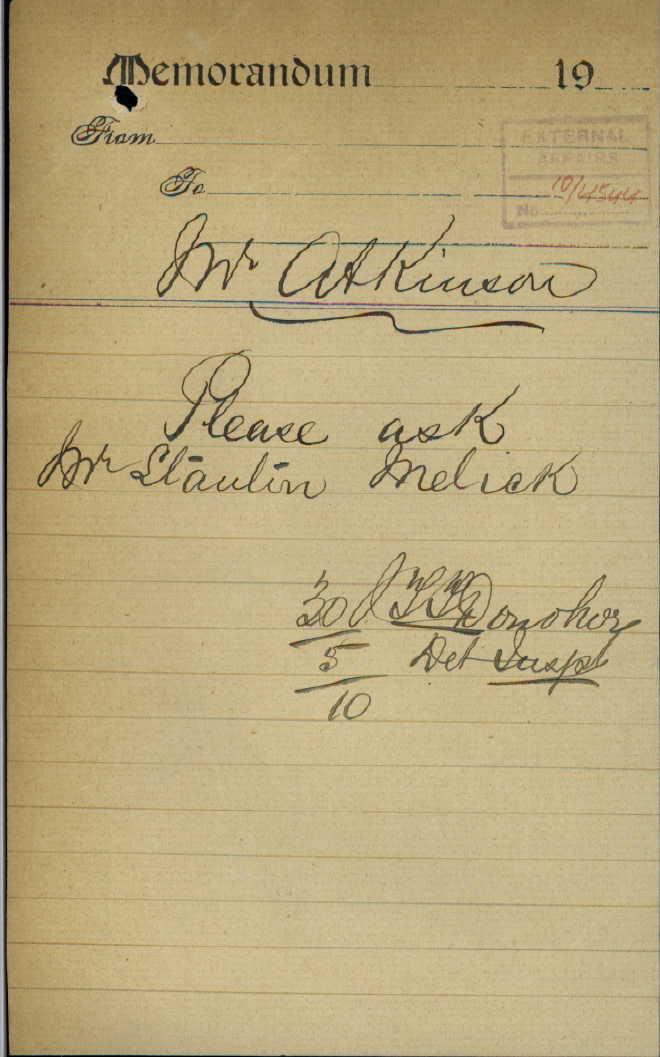 Memorandum 19
From
To
EXTERNAL
AFFAIRS
10/4544
No.
Mr Atkinson
Please ask
Mr Stanlin Melick
Donohoe
30
5 Det Inspr
10